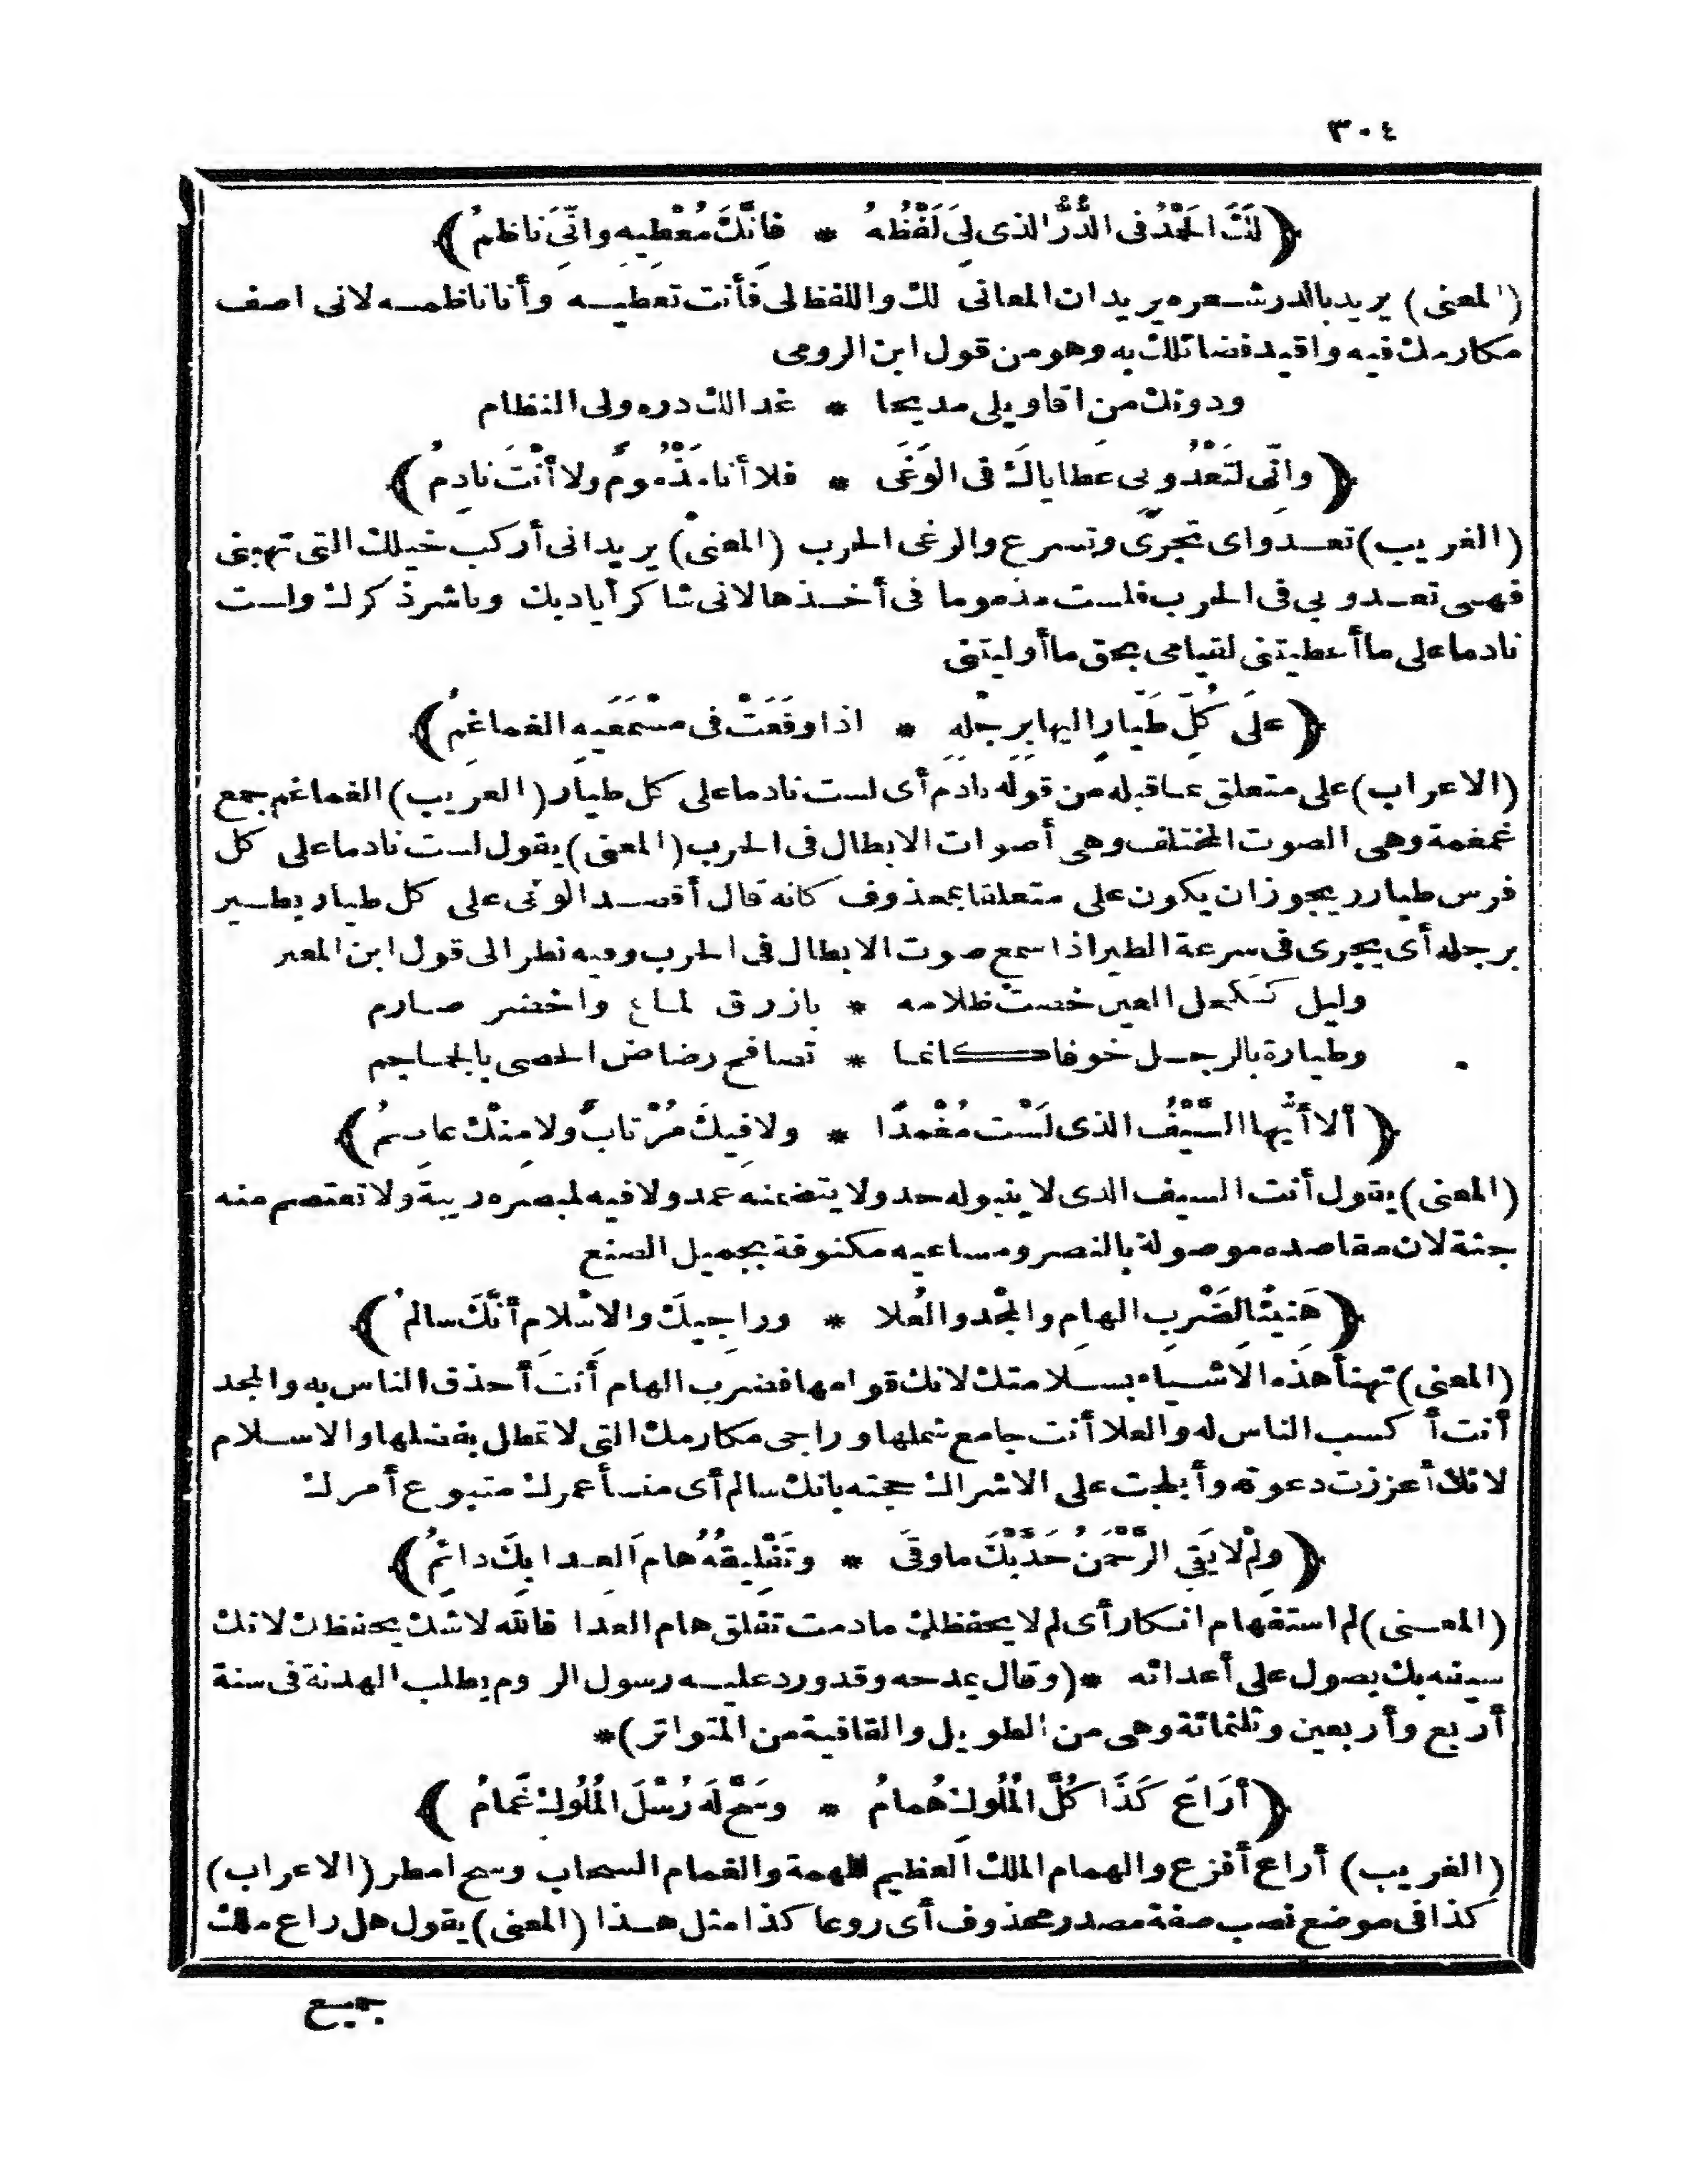 ٣٠٤
﴿لَكَ الحَمْدُ فى الدُّرِّ الذى لِىَ لَفْظُهُ * فَإِنَّكَ مُعْطِيهِ وإنِّىَ ناظِمُ﴾
(المعنى) يريد بالدر شعره يريد ان المعانى لك واللفظ لى فأنت تعطيه وأنا ناظمه لانى اصف
مكارمك فيه واقيد فضائلك به وهو من قول ابن الرومى
ودونك من اقاويلى مديحا * غدا لك دره ولى النظام
﴿وإنِّى لَتَعْدُو بِى عَطاياكَ فى الوَغَى * فلا أنا مَذْمُومٌ ولا أنْتَ نادِمُ﴾
(الغريب) تعدو اى تجرى وتسرع والوغى الحرب (المعنى) يريد انى أركب خيلك التى تهبنى
فهى تعدو بى فى الحرب فلست مذموما فى أخذها لانى شاكر أياديك وناشر ذكرك ولست
نادما على ما أعطيتنى لقيامى بحق ما أوليتنى
﴿على كُلِّ طَيَّارٍ اليها بِرِجْلِهِ * اذا وقَعَتْ فى مسْمَعَيهِ الغماغِمُ﴾
(الاعراب) على متعلق بما قبله من قوله نادم أى لست نادما على كل طيار (الغريب) الغماغم جمع
غمغمة وهى الصوت المختلف وهى أصوات الابطال فى الحرب (المعنى) يقول لست نادما على كل
فرس طيار ويجوز ان يكون على متعلقا بمحذوف كانه قال أقصد الوغى على كل طيار يطير
برجله أى يجرى فى سرعة الطير اذا سمع صوت الابطال فى الحرب وفيه نظر الى قول ابن المعتز
وليل ككحل العين خضت ظلامه * بازرق لماع واخضر صارم
وطيارة بالرجل خوفا كانما * تصافح رضاض الحصى بالجماجم
﴿ألا أيُّها السَّيْفُ الذى لَسْت مُغْمدًا * ولا فِيكَ مُرْتابٌ ولا مِنْكَ عاصِمُ﴾
(المعنى) يقول أنت السيف الذى لا ينبو له حد ولا يتضمنه غمد ولا فيه لمبصره ريبة ولا تعتصم منه
جنة لان مقاصده موصولة بالنصر ومساعيه مكنوفة بجميل الصنع
﴿هَنِيئًا لِضَرْبِ الهامِ والمجْد والعُلا * وراجِيكَ والإسْلامِ أنَّكَ سالمُ﴾
(المعنى) تهنأ هذه الاشياء بسلامتك لانك قوامها فضرب الهام أنت أحذق الناس به والمجد
أنت أكسب الناس له والعلا أنت جامع شملها وراجى مكارمك التى لا تمطل بفضلها والاسلام
لانك أعززت دعوته وأبلجت على الاشراك حجته بانك سالم أى منسأ عمرك متبوع أمرك
﴿ولِمْ لا يَقِى الرَّحْمَنُ حَدَّيْكَ ما وقَى * وتَفْلِيقُهُ هامَ العِدا بِكَ دائِمُ﴾
(المعنى) لم استفهام انكار أى لم لا يحفظك ما دمت تفلق هام العدا فالله لا شك يحفظك لانك
سيفه بك يصول على أعدائه *(وقال يمدحه وقد ورد عليه رسول الروم يطلب الهدنة فى سنة
أربع وأربعين وثلثمائة وهى من الطويل والقافية من المتواتر)*
﴿أرَاعَ كَذَا كُلَّ المُلُوكِ هُمامُ * وسَحَّ لَهُ رُسْلَ المُلُوكِ غَمامُ﴾
(الغريب) أراع أفزع والهمام الملك العظيم الهمة والغمام السحاب وسح امطر (الاعراب)
كذا فى موضع نصب صفة مصدر محذوف أى روعا كذا مثل هذا (المعنى) يقول هل راع ملك
جميع